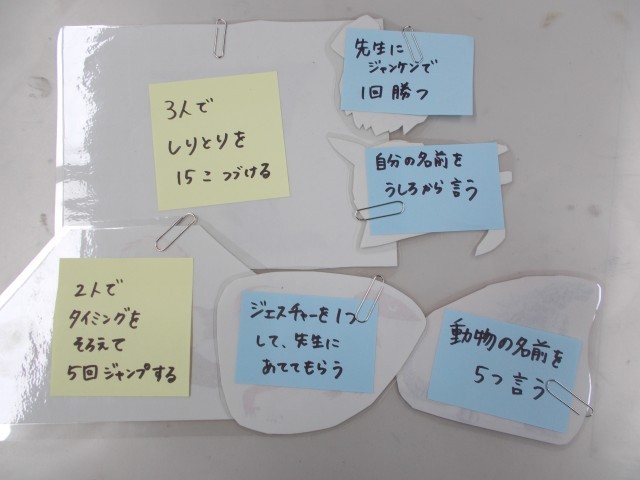 先生に
ジャンケンで
1回 勝つ
3人で
しりとりを
15こ つづける
自分の名前を
うしろから 言う
2人で
タイミングを
そろえて
5回 ジャンプする
ジェスチャーを1つ
して、先生に
あててもらう
動物の名前を
5つ 言う